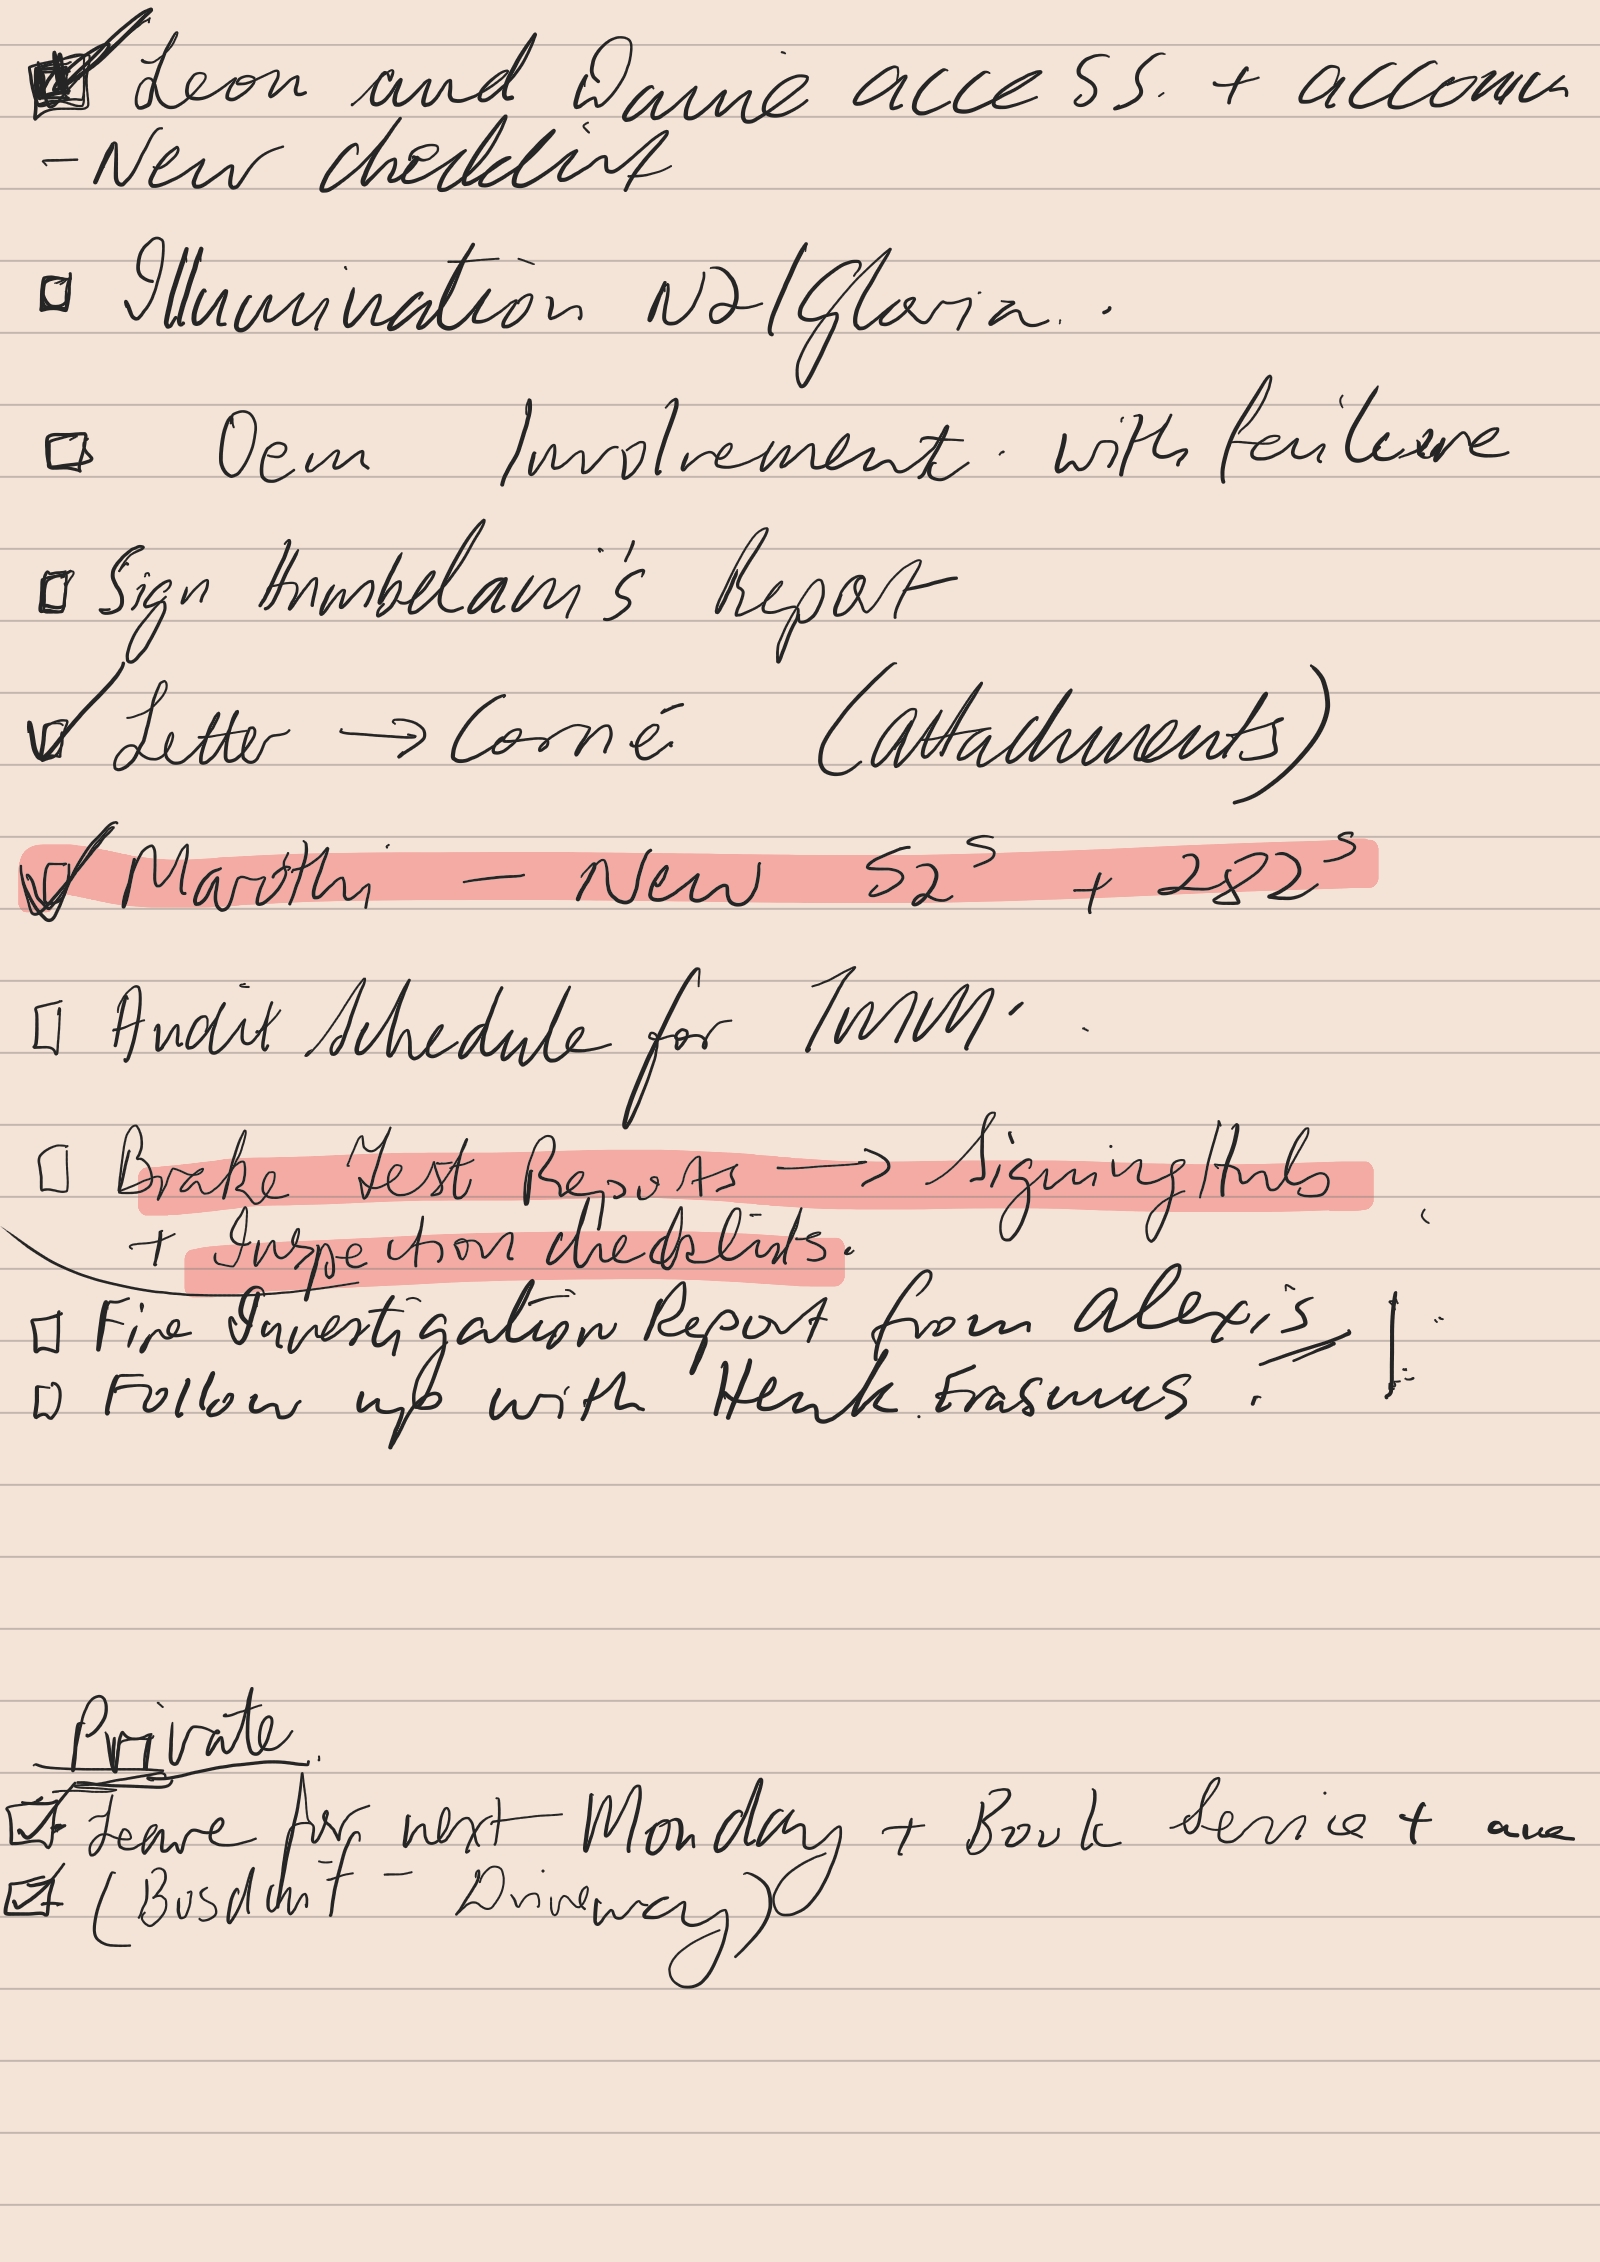 Leon and access. + accomm
- New checklist
Illumination N2/Gloria.
Oem Involvement with failure
Sign Humbelani's Report
Letter → Corné (attachments)
Marothi - New 52s + 282s
Audit Schedule for TMM.
Brake Test Reports → SigningHub
+ Inspection checklists.
Fire Investigation Report from alexis
Follow up with Henk Erasmus.
Private
Leave for next Monday + Book Service +
( - Driveway)